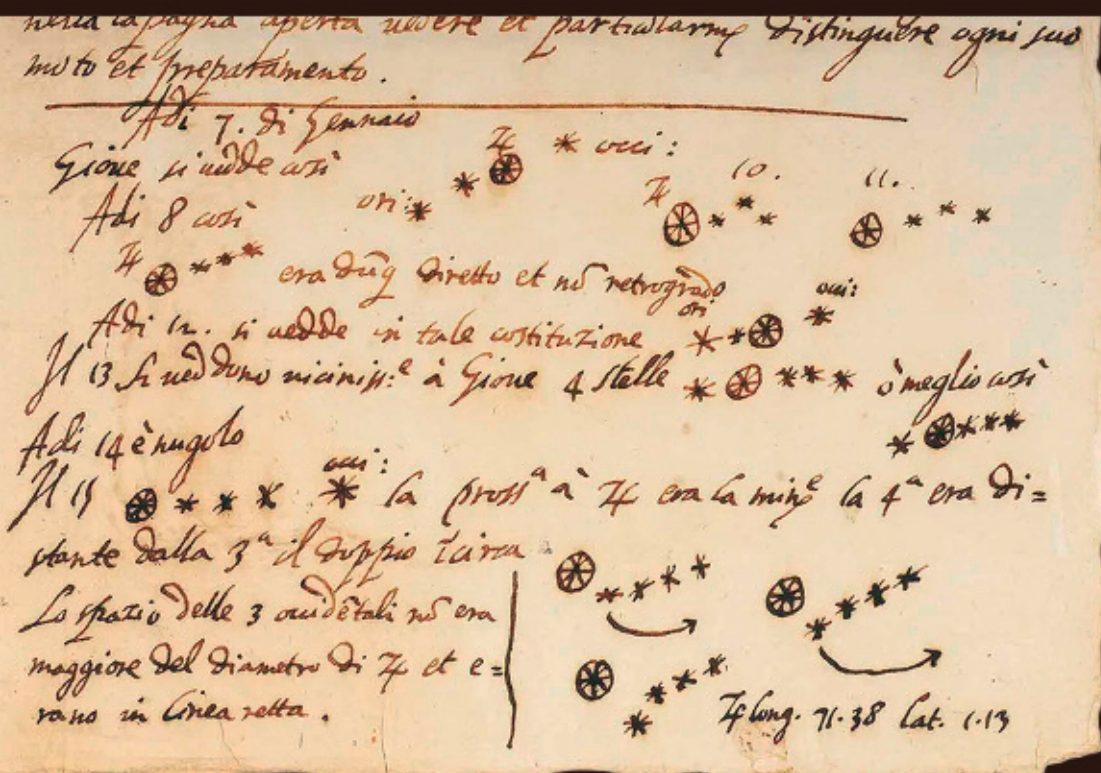 nella la pagna aperta vedere et particularmẽ distinguere ogni suo
moto et preparamento.
Adi 7. di Gennaio
Gioue si uedde cosi
♃ * occi:
ori:
Adi 8 cosi
♃ 10. 11.
♃ era dũq diretto et nõ retrogrado
Adi 12. si uedde in tale costituzione
ori
occi:
Il 13 si ueddono uiciniss:e à Gioue 4 stelle ò meglio cosi
Adi 14 è nugolo
Il 15 occi: la prossa à ♃ era la mine la 4a era di=
stante dalla 3a il doppio ĩcirca
Lo spazio delle 3 ouidẽtali nõ era
maggiore del diametro di ♃ et e=
rano in linea retta.
♃ long. 71.38 lat. 1.13